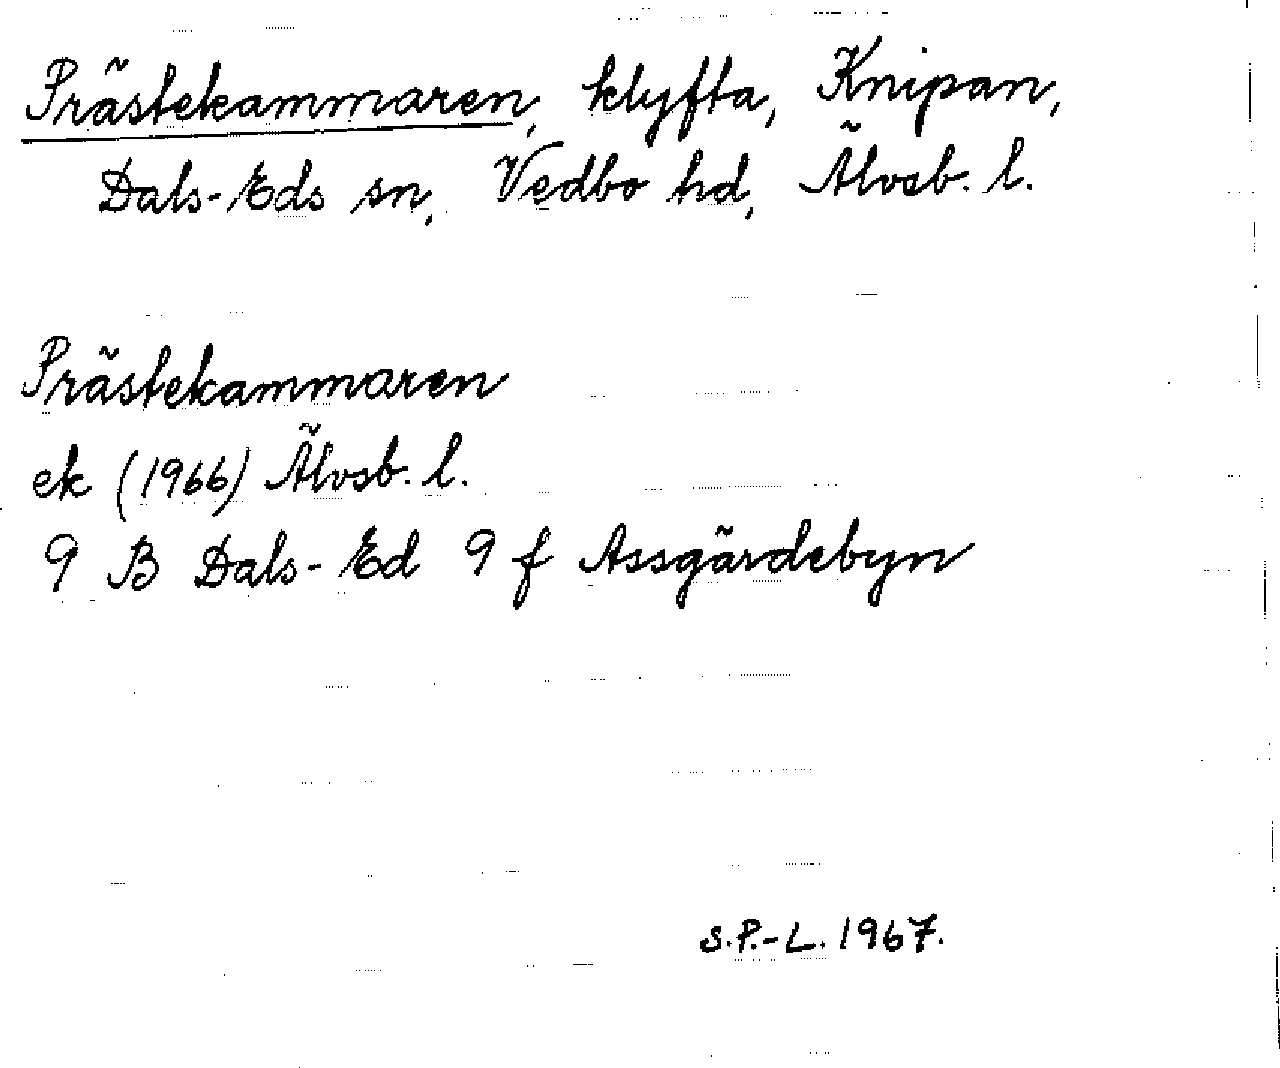 Prästekammaren, klyfta, Knipan,
Dals-Eds sn, Vedbo hd, Älvsb. l.
Prästekammaren
ek (1966) Älvsb. l.
9 B Dals-Ed 9 f Assgärdebyn
S.P.-L. 1967.